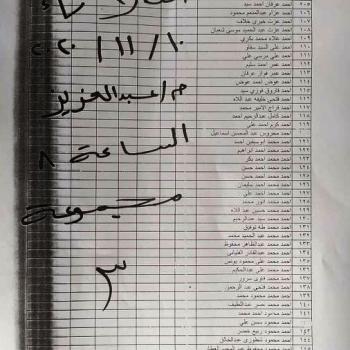 الثلاثاء
٢٠٢٠/١١/١٠
م/عبدالعزيز
الساعة ٨
مجموعة
٣
١٠٥ احمد عرفان احمد سيد
١٠٦ احمد عزام عبدالمنعم محمود
١٠٧ احمد عزت خيرى خلاف
١٠٨ احمد عزت عبد الحميد موسى شعبان
١٠٩ احمد علاء محمد بكرى
١١٠ احمد على السيد
١١١ احمد على مرسى على
١١٢ احمد عمر احمد سليم
١١٣ احمد عمر فواز عرفان
١١٤ احمد عوض احمد عوض
١١٥ احمد فاروق فوزى سيد
١١٦ احمد فتحى خليفه عبد اللاه
١١٧ احمد فراج الامير محمد
١١٨ احمد كامل عبدالرحيم احمد
١١٩ احمد كرم احمد على
١٢٠ احمد محروس عبد المحسن اسماعيل
١٢١ احمد محمد ابوسيفين احمد
١٢٢ احمد محمد احمد ابراهيم
١٢٣ احمد محمد احمد بكر
١٢٤ احمد محمد احمد حسن
١٢٥ احمد محمد احمد حسن
١٢٦ احمد محمد احمد سليمان
١٢٧ احمد محمد احمد على
١٢٨ احمد محمد انور محمد
١٢٩ احمد محمد حسين عبد اللاه
١٣٠ احمد محمد سيد عبدالرحيم
١٣١ احمد محمد طه توفيق
١٣٢ احمد محمد عبد الحميد محمد
١٣٣ احمد محمد عبدالظاهر محفوظ
١٣٤ احمد محمد عبدالقادر
١٣٥ احمد محمد على محمود يونس
١٣٦ احمد محمد على عبدالحكيم
١٣٧ احمد محمد فتوى سرور
١٣٨ احمد محمد فتحى عبد الرحمن
١٣٩ احمد محمد محمود محمد
١٤٠ احمد محمد نصر عبداللطيف
احمد محمود احمد محمد
احمد محمود حسن على
١٤٣ احمد محمود ربيع خضر
احمد محمود عبدالخالق
١٤٥ احمد محمود محفوظ عبد